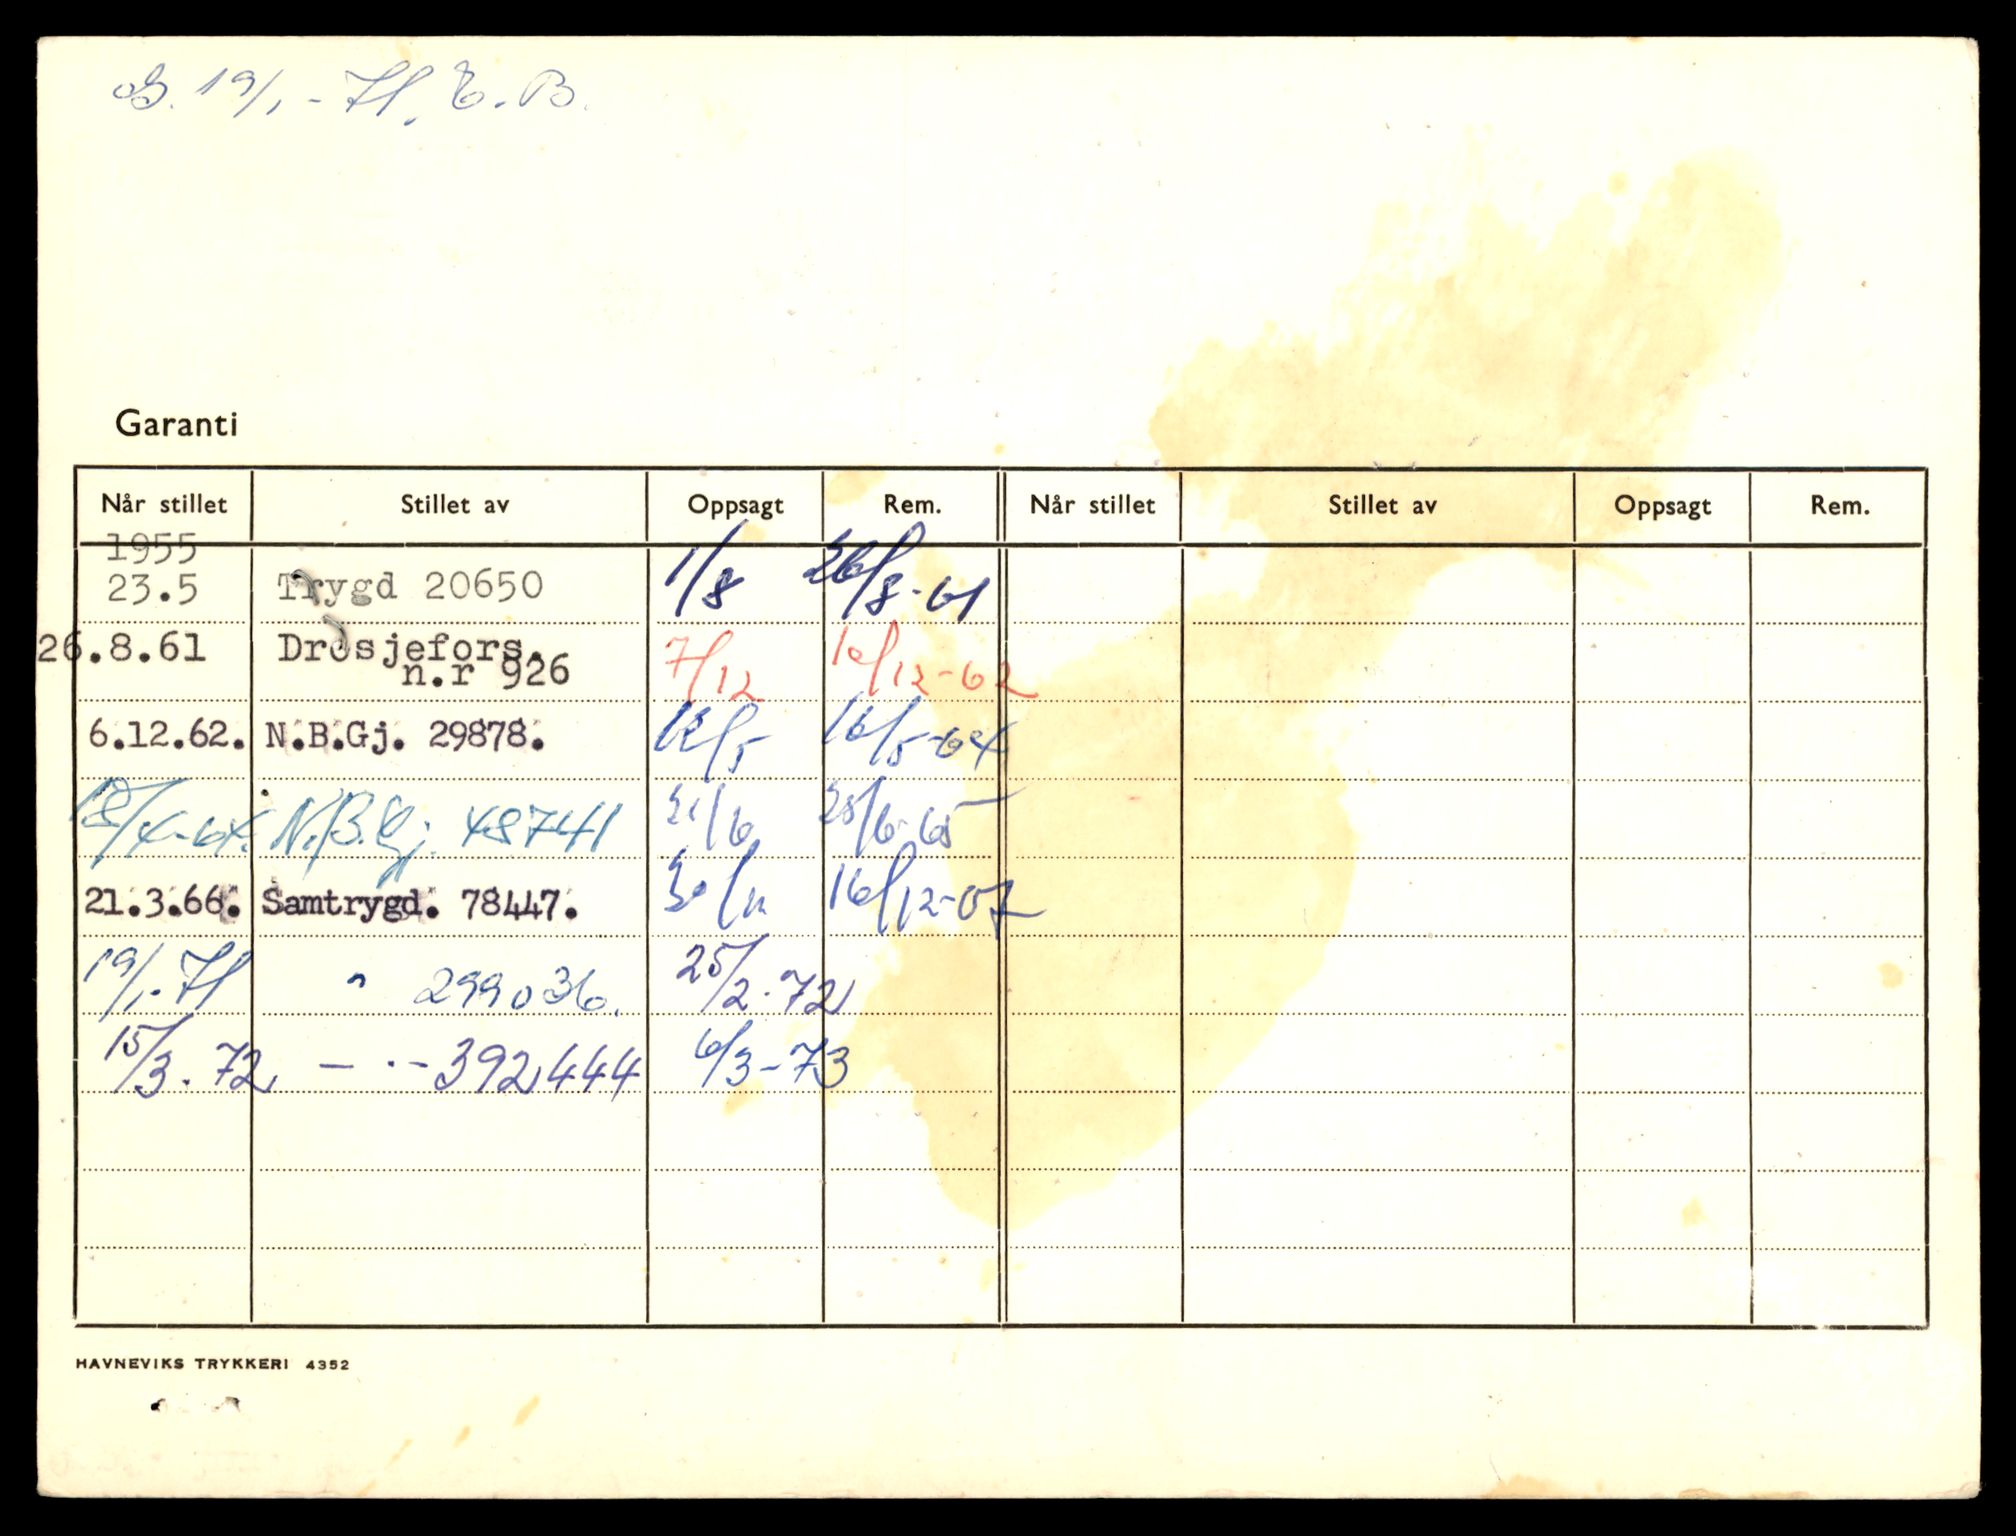 19/1 - 71. E. B.
Garanti
Når stillet Stillet av Oppsagt Rem. Når stillet Stillet av Oppsagt Rem.
1955
23.5 Trygd 20650 1/8 26/8-61
26.8.61 Drosjefors. 7/12 10/12-62
n.r 926
6.12.62. N.B.Gj. 29878. 12/5 16/5-64
18/4-64. N.B.Gj. 48741 21/6 25/6-65
21.3.66. Samtrygd. 78447. 30/11 16/12-67
19/1.71 " 299036. 25/2.72
15/3.72 - " - 392444 6/3-73
HAVNEVIKS TRYKKERI 4352